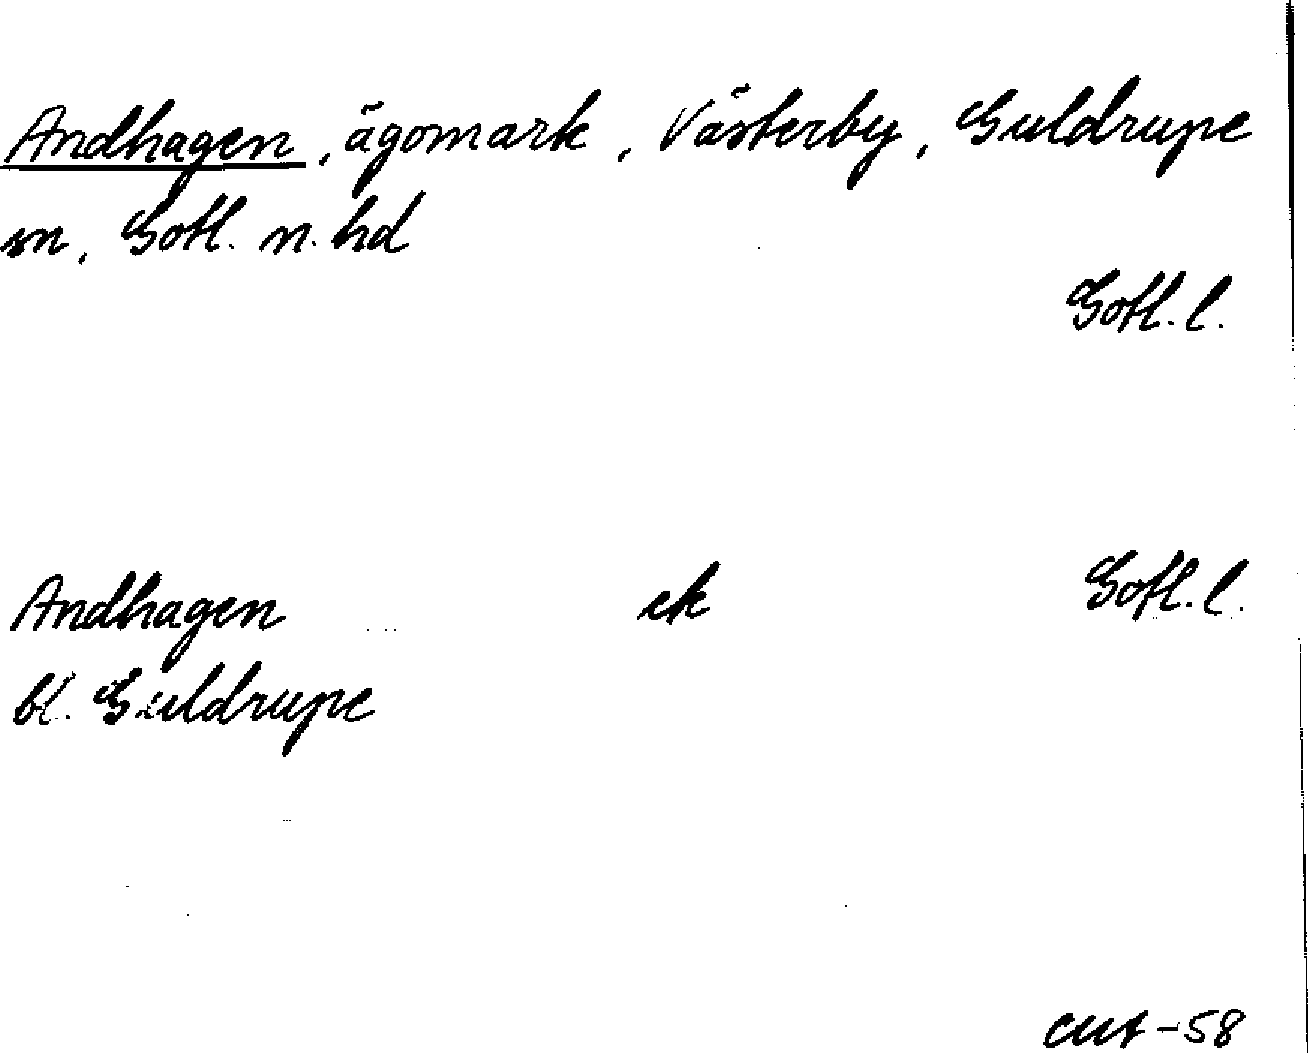 Andhagen, ägomark, Västerby, Guldrupe
sn, Gotl. n. hd
Gotl. l.
Andhagen ek Gotl. l.
bl. Guldrupe
-58